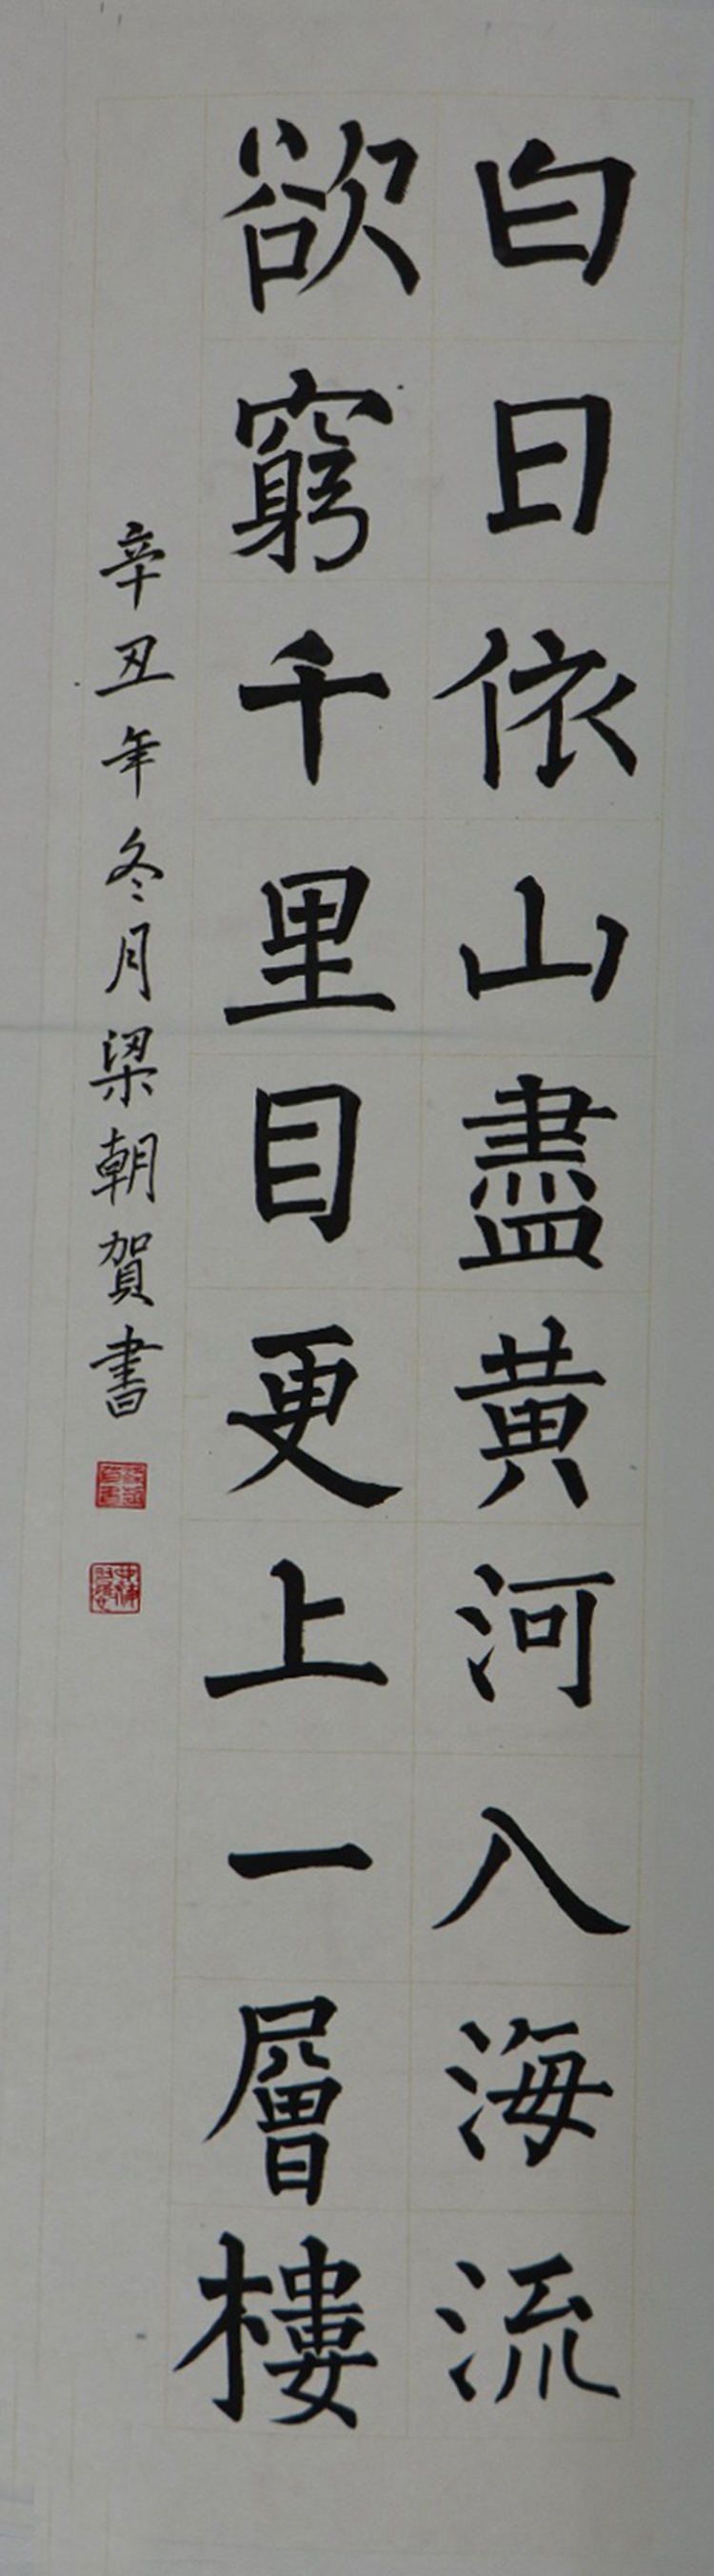 白日依山盡黄河入海流
欲窮千里目更上一層樓
辛丑年冬月梁朝賀書